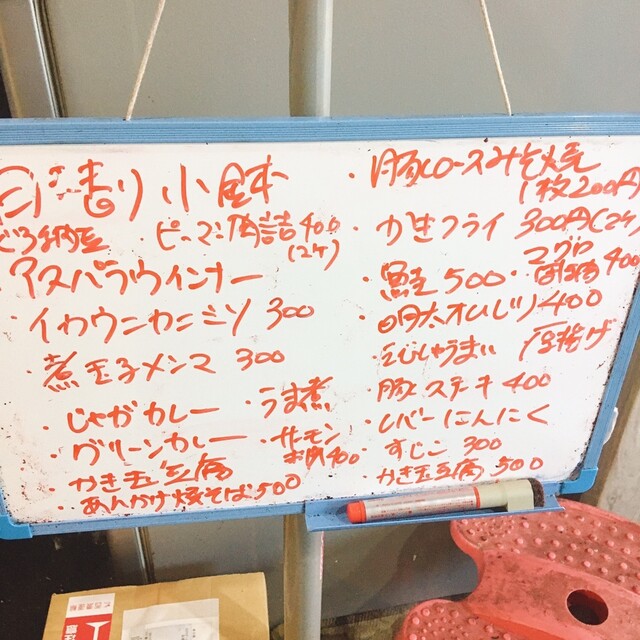 日替り小鉢
ピーマン肉詰400
(2ケ)
アスパラウインナー
・イカウニカニミソ 300
・煮玉子メンマ 300
・じゃがカレー ・うま煮
・グリーンカレー ・サーモン
400
・かき玉豆腐
・あんかけ焼そば500
・豚ロースみそ焼
1枚200円
・かきフライ 300円(2ケ)
・鮭 500 ・マグロ
400
・明太 400
厚揚げ
・豚ステーキ 400
・レバーにんにく
すじこ 300
かき玉豆腐 500